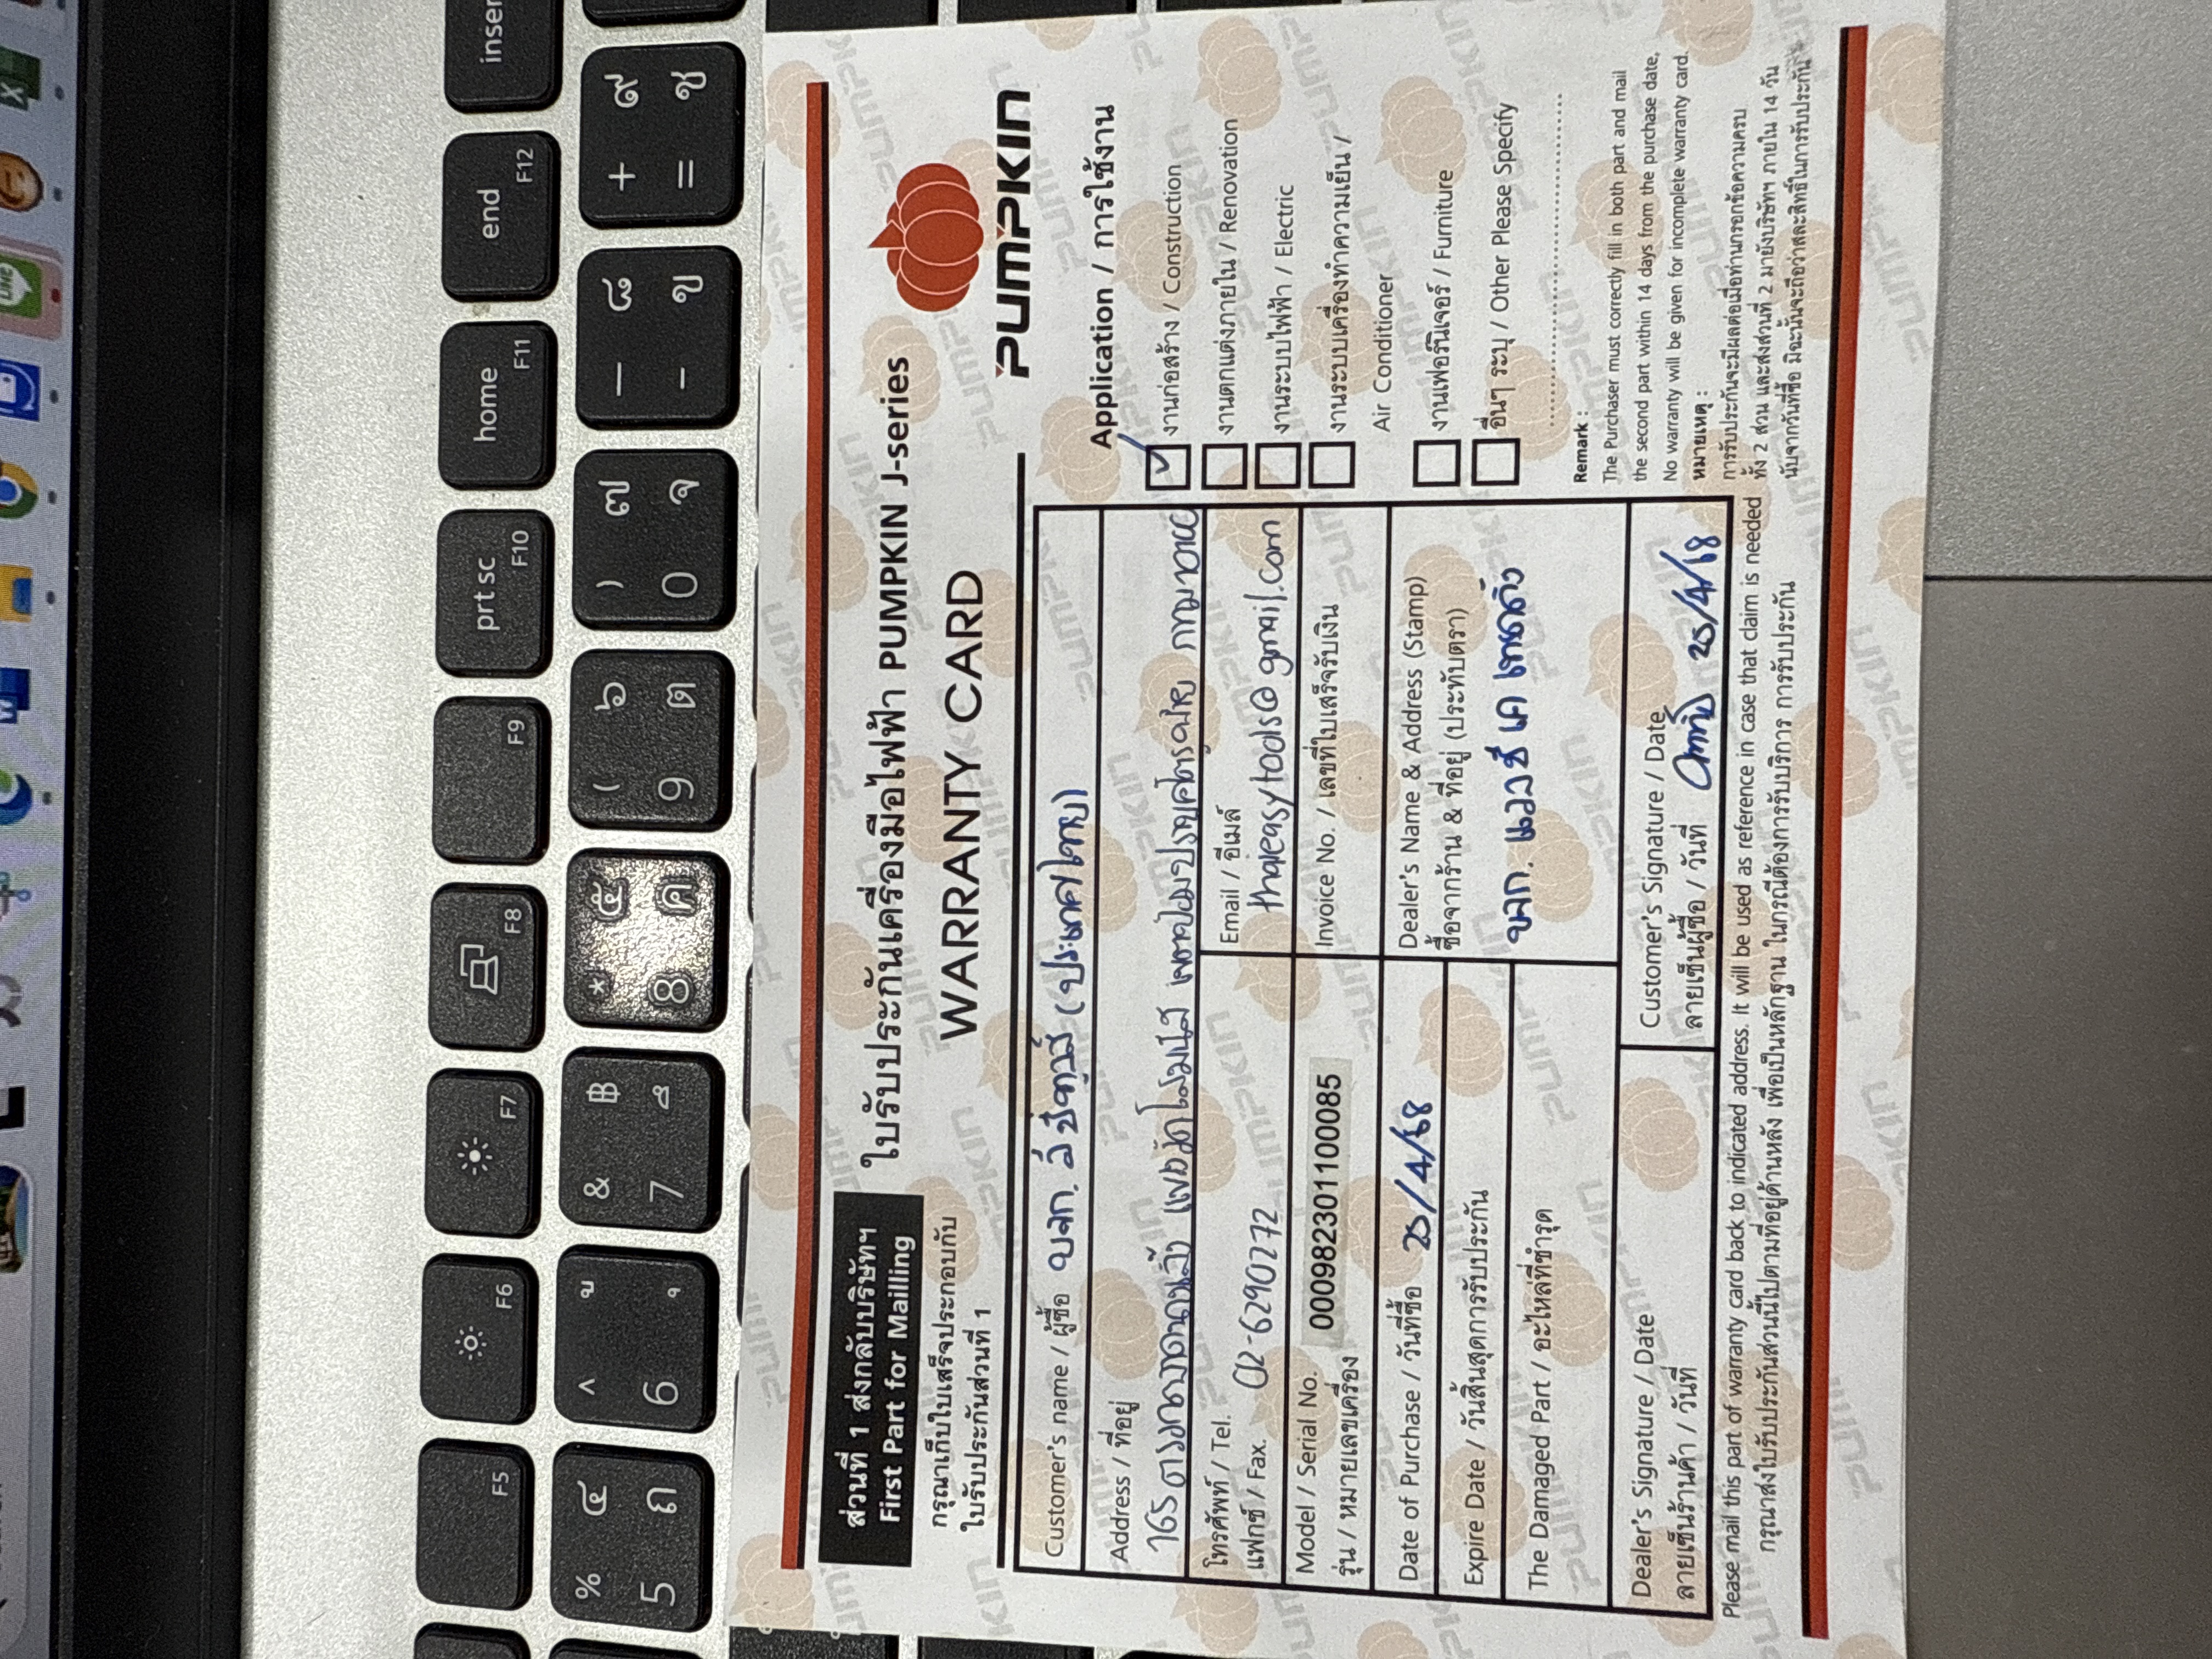 ส่วนที่ 1 ส่งกลับบริษัทฯ
First Part for Mailling
กรุณาเก็บใบเสร็จประกอบกับ
ใบรับประกันส่วนที่ 1
ใบรับประกันเครื่องมือไฟฟ้า PUMPKIN J-series
WARRANTY CARD
PUMPKIN
Customer's name / ผู้ซื้อ บจก. (ประเทศไทย)
Address / ที่อยู่
โทรศัพท์ / Tel.
แฟกซ์ / Fax. 02-6290272
Email / อีเมล์
thaieasytools@gmail.com
Model / Serial No.
รุ่น / หมายเลขเครื่อง 000982301100085
Invoice No. / เลขที่ใบเสร็จรับเงิน
Date of Purchase / วันที่ซื้อ 25/4/68
Expire Date / วันสิ้นสุดการรับประกัน
The Damaged Part / อะไหล่ที่ชำรุด
Dealer's Name & Address (Stamp)
ซื้อจากร้าน & ที่อยู่ (ประทับตรา)
บจก.
Dealer's Signature / Date
ลายเซ็นร้านค้า / วันที่
Customer's Signature / Date
ลายเซ็นผู้ซื้อ / วันที่ 25/4/68
Application / การใช้งาน
งานก่อสร้าง / Construction
งานตกแต่งภายใน / Renovation
งานระบบไฟฟ้า / Electric
งานระบบเครื่องทำความเย็น /
Air Conditioner
งานเฟอร์นิเจอร์ / Furniture
อื่นๆ ระบุ / Other Please Specify
Remark :
The Purchaser must correctly fill in both part and mail
the second part within 14 days from the purchase date,
No warranty will be given for incomplete warranty card.
หมายเหตุ :
การรับประกันจะมีผลต่อเมื่อท่านกรอกข้อความครบ
ทั้ง 2 ส่วน และส่งส่วนที่ 2 มายังบริษัทฯ ภายใน 14 วัน
นับจากวันที่ซื้อ มิฉะนั้นจะถือว่าสละสิทธิ์ในการรับประกัน
Please mail this part of warranty card back to indicated address. It will be used as reference in case that claim is needed
กรุณาส่งใบรับประกันส่วนนี้ไปตามที่อยู่ด้านหลัง เพื่อเป็นหลักฐาน ในกรณีต้องการรับบริการ การรับประกัน
F5
F6
F7
F8
F9
prt sc F10
home F11
end F12
inser
% ๔ 5 ถ
^ ู 6 ุ
& ฿ 7 ึ
* ๕ 8 ค
( ๖ 9 ต
) ๗ 0 จ
_ ๘ - ข
+ ๙ = ช